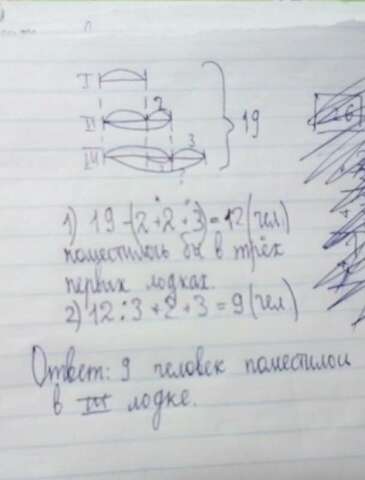 I
II 2
III 3 } 19
?
1) 19-(2+2+3)=12(чел)
поместилось бы в трёх
первых лодках.
2) 12:3+2+3=9(чел)
Ответ: 9 человек поместилось
в III лодке.